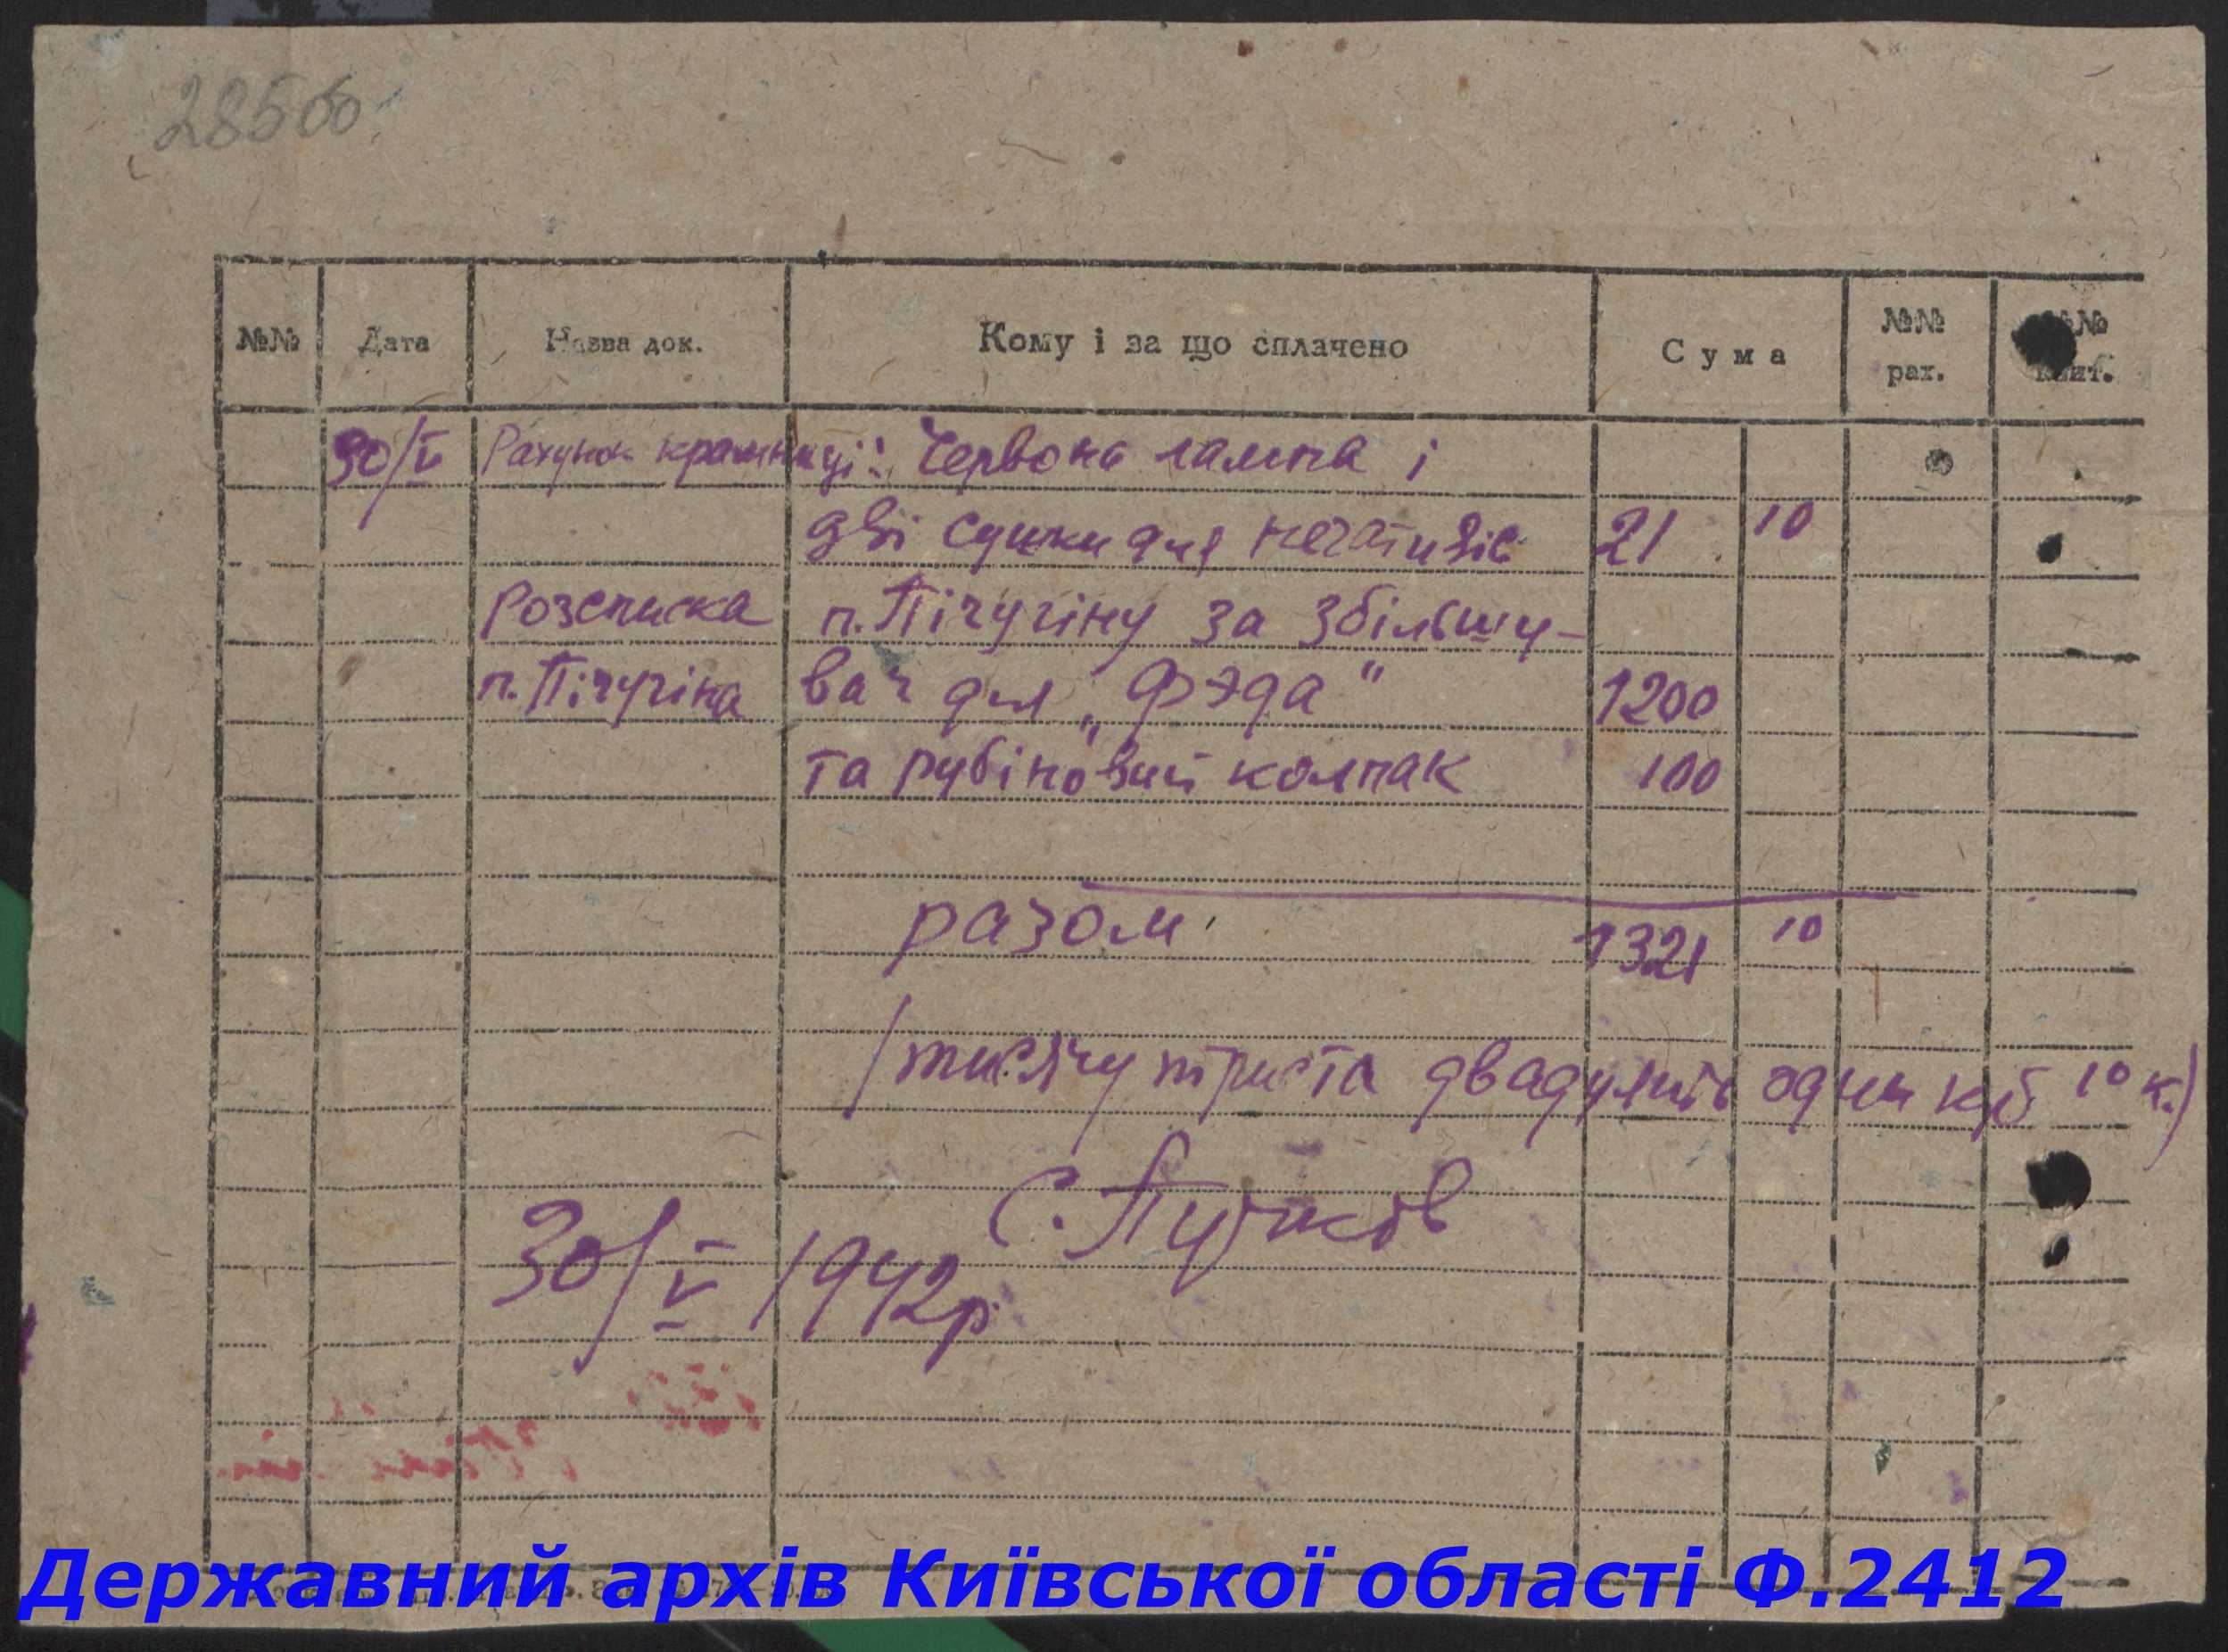 28500
№№ Дата Назва док. Кому і за що сплачено Сума №№ рах. №№ квит.
30/V Рахунок крамниці: Червона лампа і
дві сушки для негативів 21 10
Розписка п. Пічугіну за збільшу-
п. Пічугіна вач для „Фэда" 1200
та рубіновий колпак 100
разом 1321 10
/тисячу триста двадцять один крб 10 к.)
С. Пучков
30/V 1942р.
Державний архів Київської області Ф.2412